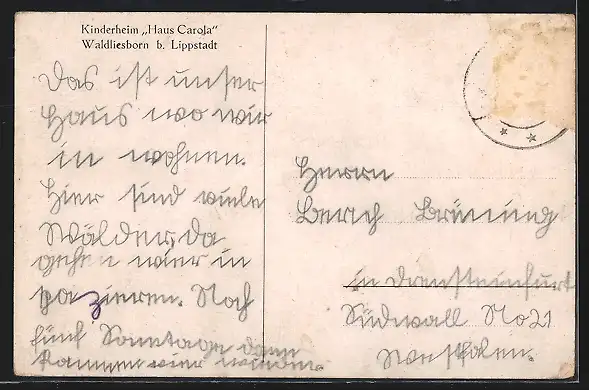 Kinderheim „Haus Carola"
Waldliesborn b. Lippstadt
Das ist unser
Haus wo wir
in wohnen.
Hier sind viele
Wälder, da
gehen wier in
spazieren. Noch
fünf Sonntage dann
kommen wier wieder.
Herrn
Brüning
in Drensteinfurt
Südwall No 21
Westfalen.